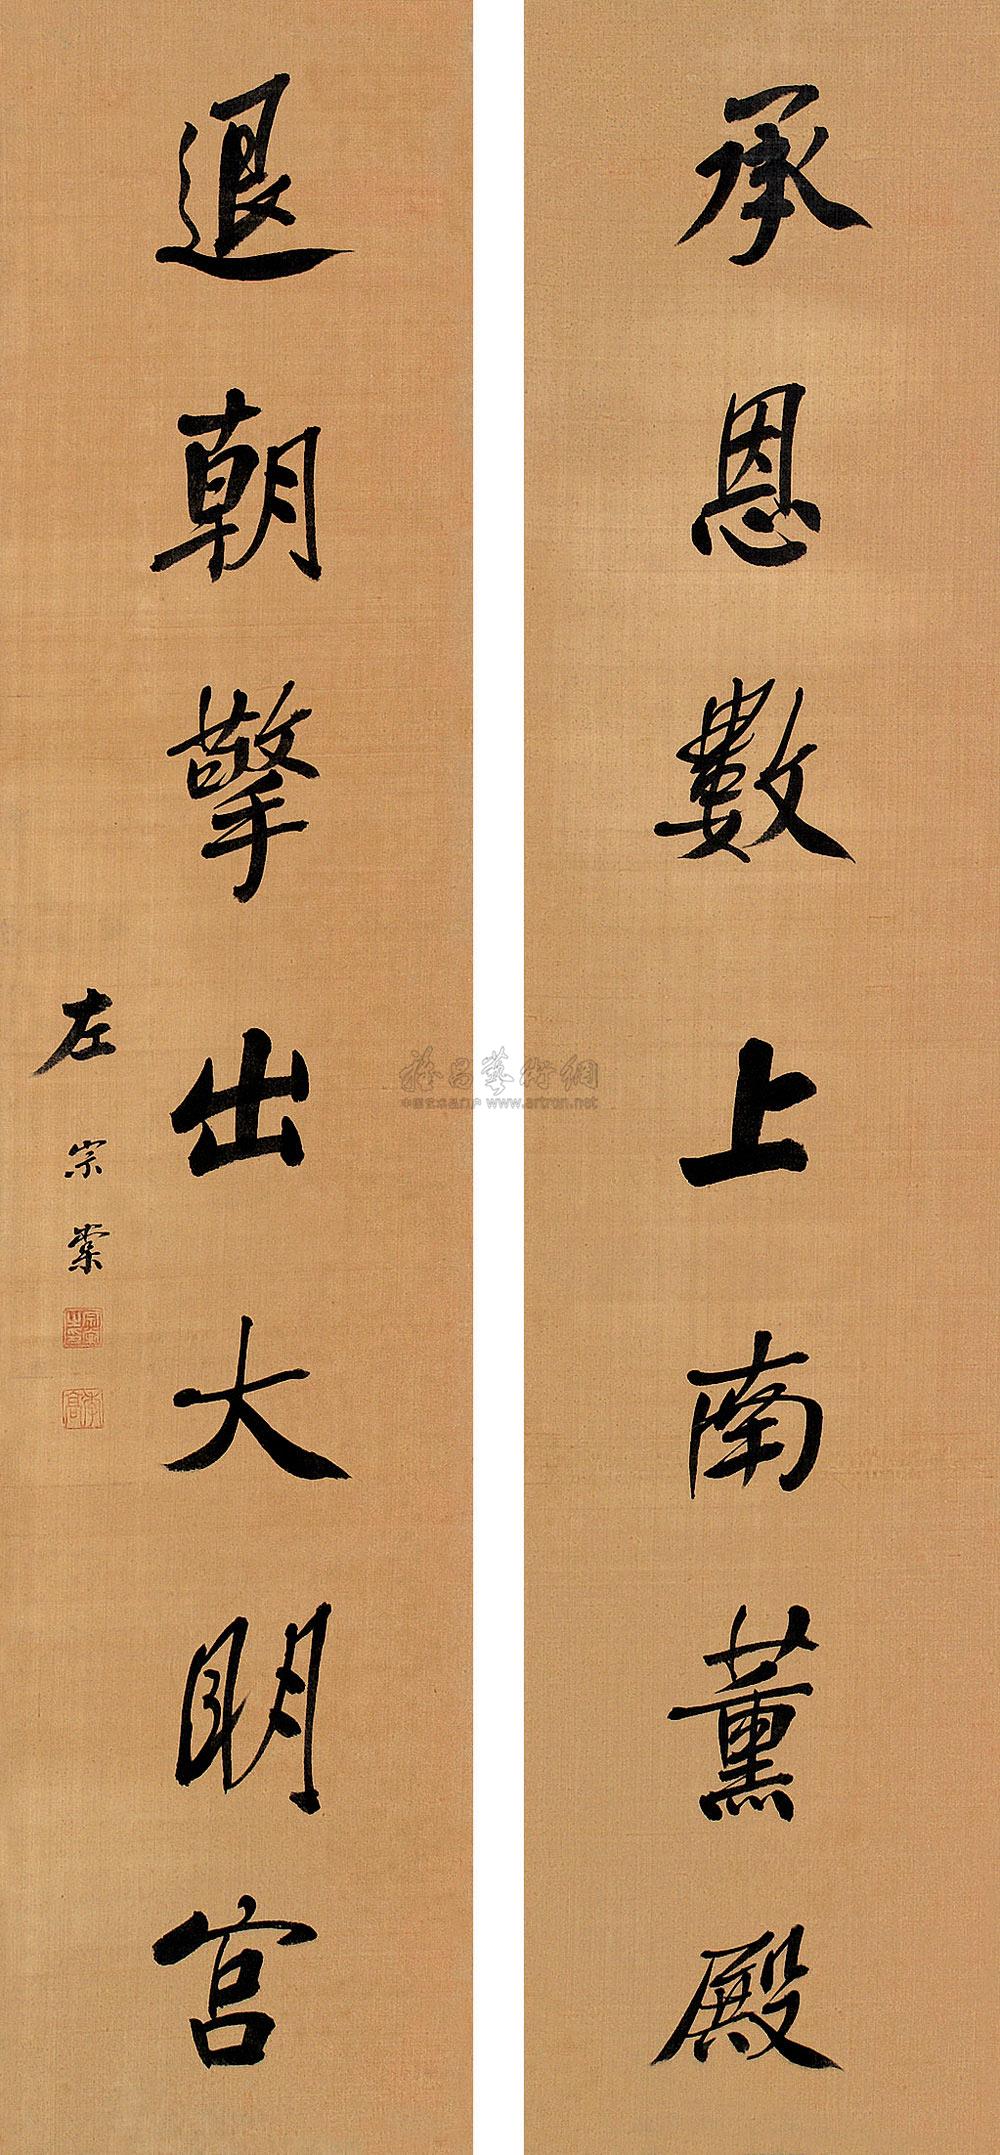 承恩數上南薰殿
退朝擎出大明宮
左宗棠
季高
雅昌藝術網
www.artron.net